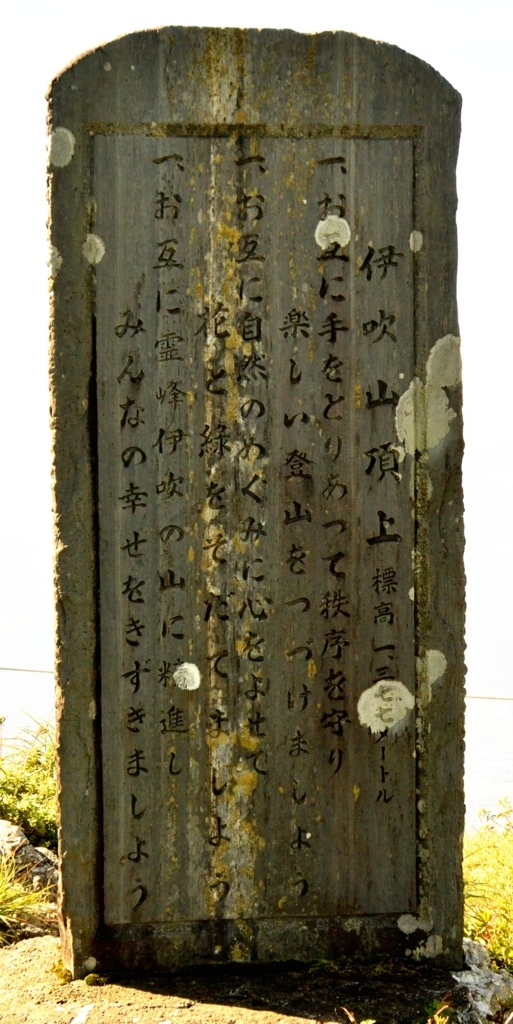 伊吹山頂上 標高一三七七メートル
一、お互に手をとりあつて秩序を守り
楽しい登山をつづけましよう
一、お互に自然のめぐみに心をよせて
花と緑をそだてましよう
一、お互に霊峰伊吹の山に精進し
みんなの幸せをきずきましよう